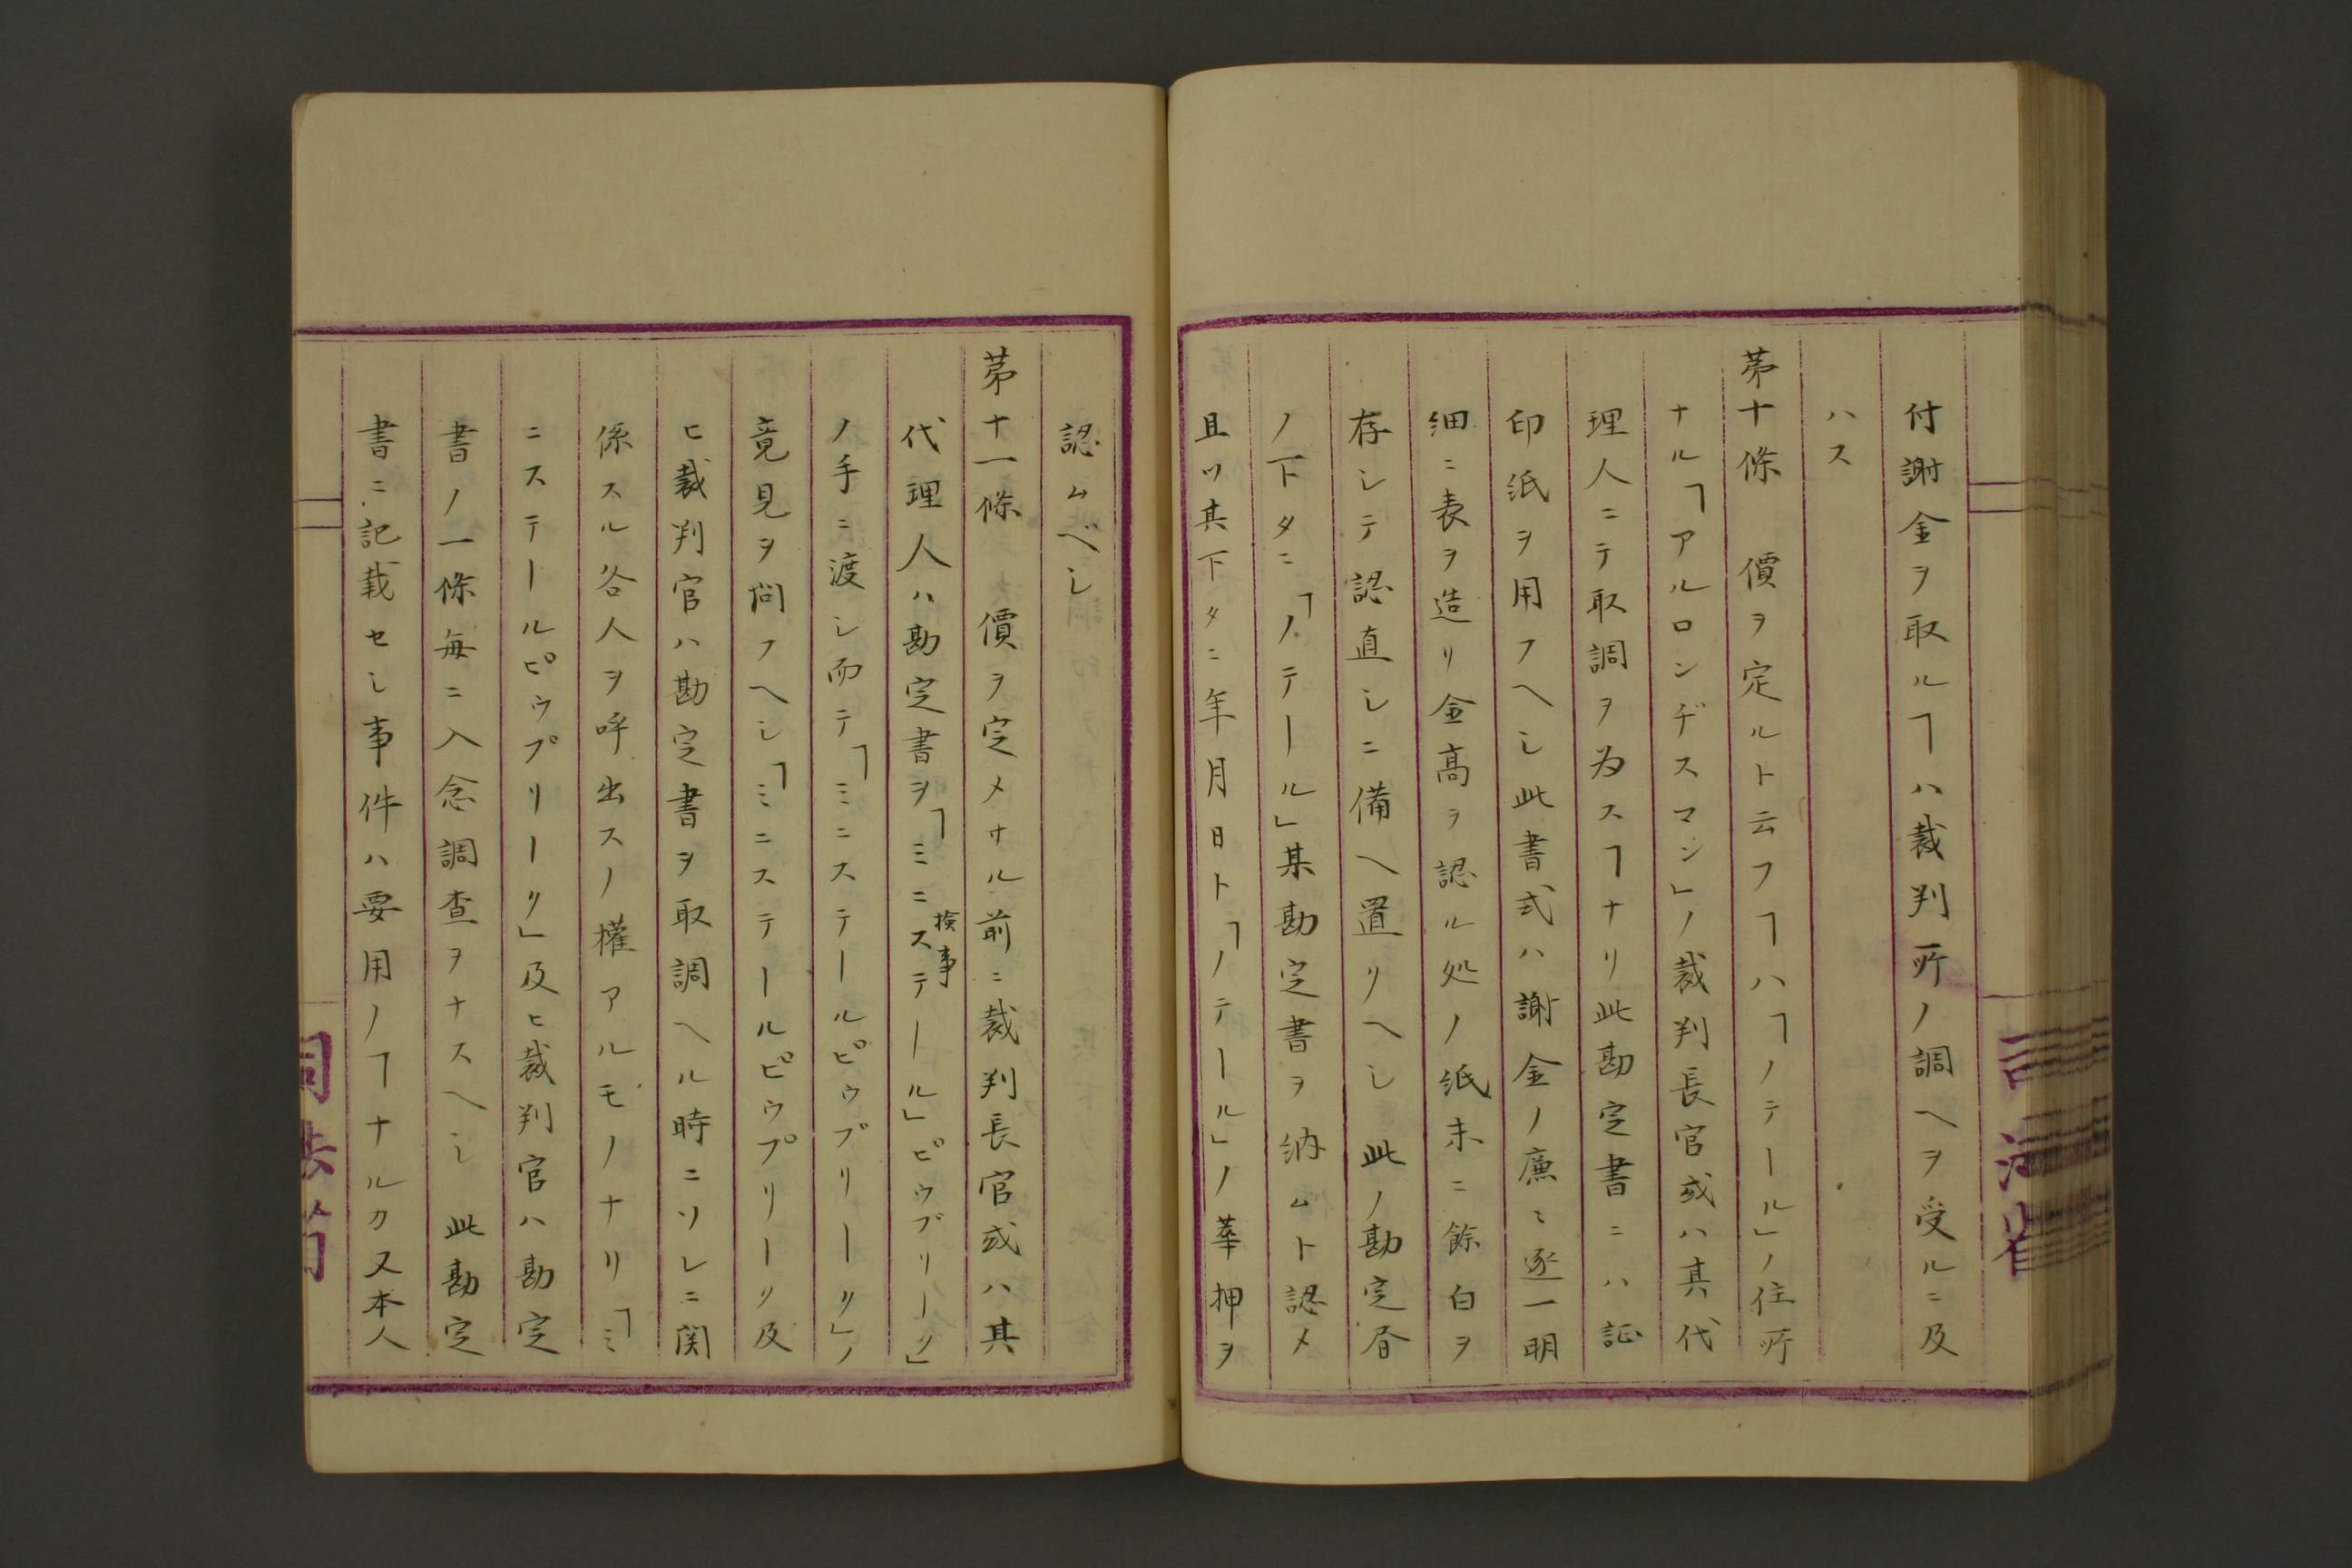 付謝金ヲ取ルヿハ裁判所ノ調ヘヲ受ルニ及
ハス
第十條　價ヲ定ルト云フヿハ「ノテール」ノ住所
ナル「アルロンヂスマン」ノ裁判長官或ハ其代
理人ニテ取調ヲ為スヿナリ此勘定書ニハ証
印紙ヲ用フヘシ此書式ハ謝金ノ廉〻逐一明
細ニ表ヲ造リ金高ヲ認ル処ノ紙末ニ餘白ヲ
存シテ認直シニ備ヘ置リヘシ此ノ勘定書
ノ下タニ「ノテール」某勘定書ヲ納ムト認メ
且ツ其下タニ年月日ト「ノテール」ノ華押ヲ
認ムベシ
第十一條　價ヲ定メサル前ニ裁判長官或ハ其
代理人ハ勘定書ヲ「ミニステール」ピウブリーク」
検事
ノ手ニ渡シ而テ「ミニステールピウブリーク」ノ
意見ヲ問フヘシ「ミニステールピウプリーク及
ヒ裁判官ハ勘定書ヲ取調ヘル時ニソレニ関
係スル各人ヲ呼出スノ權アルモノナリ「ミ
ニステールピウプリーク」及ヒ裁判官ハ勘定
書ノ一條毎ニ入念調査ヲナスヘシ此勘定
書ニ記載セシ事件ハ要用ノヿナルカ又本人
司法省